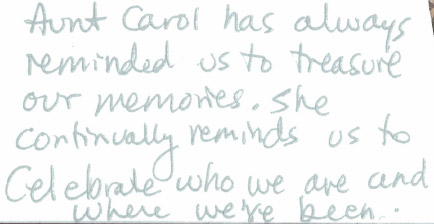 Aunt Carol has always
reminded us to treasure
our memories. She
continually reminds us to
Celebrate who we are and
where we've been.